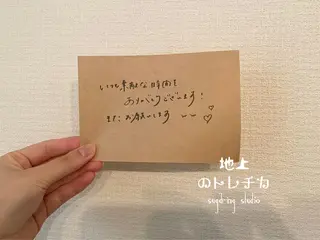 いつも素敵な時間を
ありがとうございます!
また、お願いします ♡
地上
のトレチカ